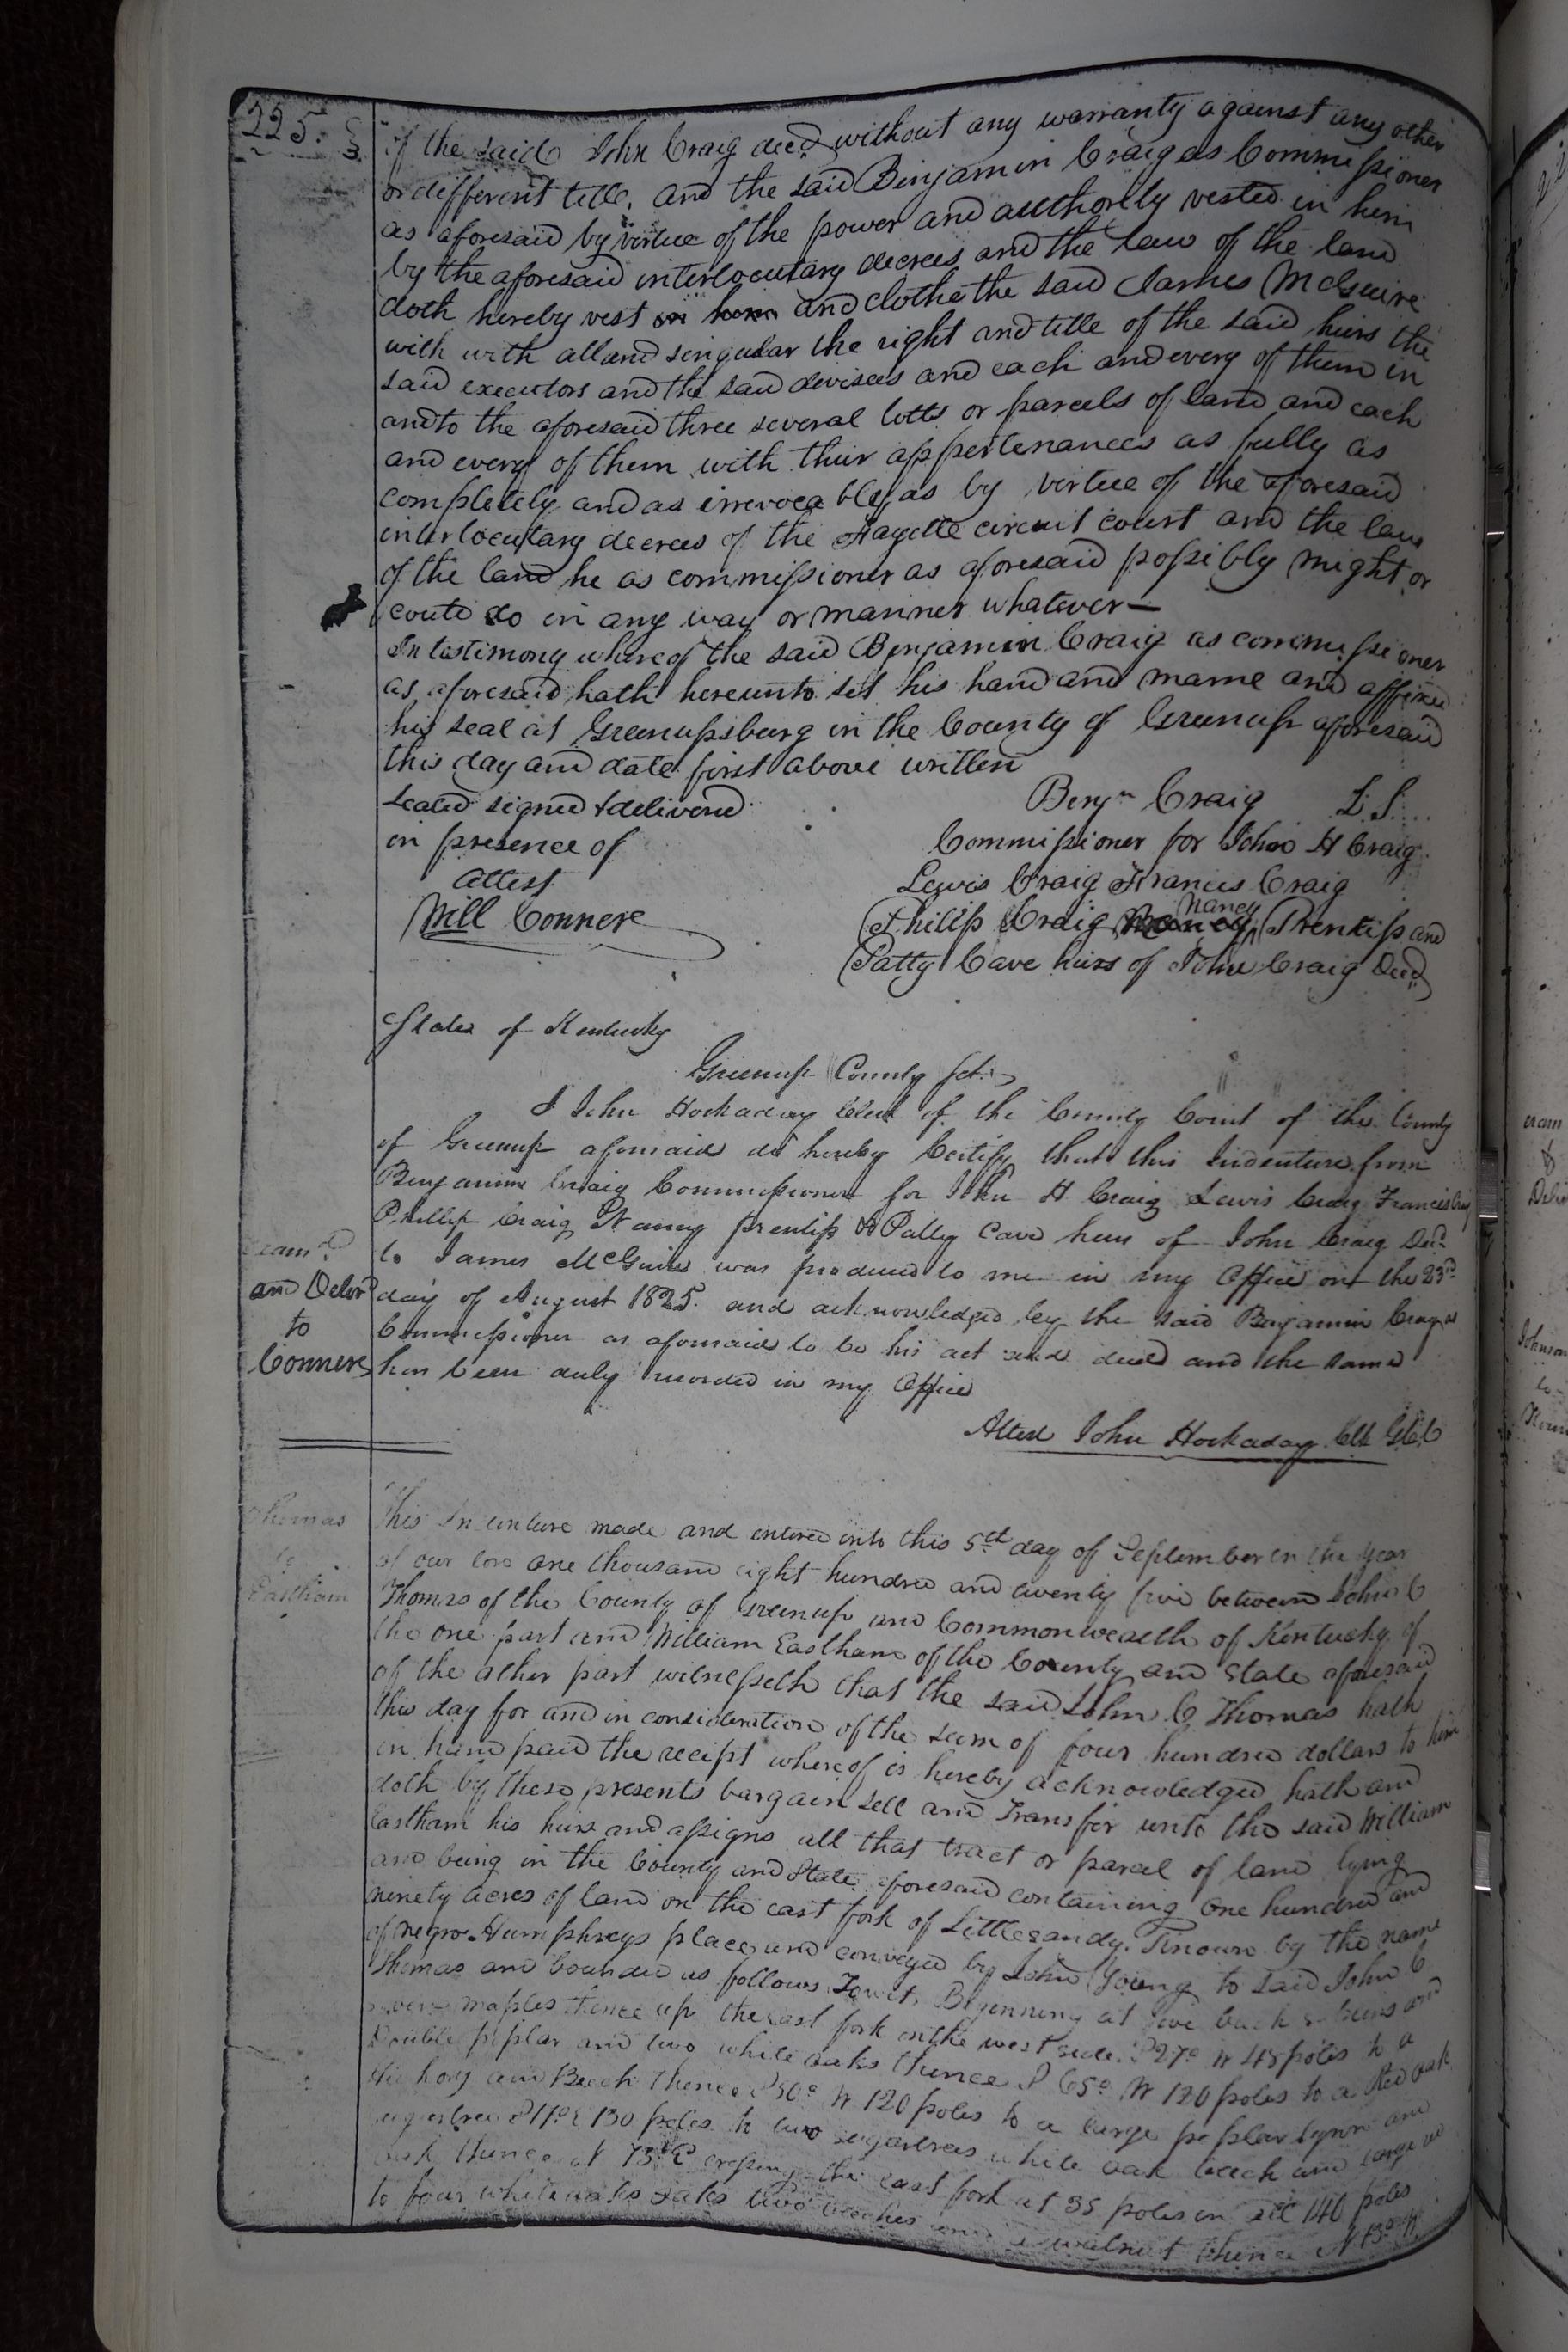 225.
of the said John Craig decd without any warranty against any other
or different title. and the said Binjamin Craig as Commissioner
as aforesaid by virtue of the power and authority vested in him
by the aforesaid interlocutary decrees and the law of the land
doth hereby vest and clothe the said James McGuire
with with all and singular the right and title of the said heirs the
said executors and the said devisees and each and every of them in
and to the aforesaid three several lotts or parcels of land and each
and every of them with their appertenances as fully as
completely and as irrevocably as by virtue of the aforesaid
interlocutary decrees of the Fayette circuit court and the law
of the land he as commissioner as aforesaid possibly might or
could do in any way or manner whatever—
In testimony whereof the said Benjamin Craig as commissioner
as aforesaid hath hereunto set his hand and name and affixed
his seal at Greenupsburg in the County of Greenup aforesaid
this day and date first above written
Sealed signed & delivered
in presence of
Attest
Will Connere
Benjn Craig L.S.
Commissioner for John H Craig
Lewis Craig Francis Craig
Phillip Craig Nancy Prentiss and
Patty Cave heirs of John Craig Decd
State of Kentucky
Greenup County sct.
I John Hockaday Clerk of the County Court of the County
of Greenup aforesaid do hereby Certify that this Indenture from
Benjamin Craig Commissioner for John H Craig Lewis Craig Francis Craig
Phillip Craig Nancy Prentiss & Patty Cave heirs of John Craig Decd
to James McGuire was produced to me in my Office on the 23rd
day of August 1825. and acknowledged by the said Benjamin Craig as
Commissioner as aforesaid to be his act and deed and the same
has been duly recorded in my Office
Exam.d
and Delivd
to
Connere
Attest John Hockaday Clk GCC
Thomas
to
Eastham
This Indenture made and entered into this 5th day of September in the year
of our lord one thousand eight hundred and twenty five between John C
Thomas of the County of Greenup and Commonwealth of Kentucky of
the one part and William Eastham of the County and State aforesaid
of the other part witnesseth that the said John C Thomas hath
this day for and in consideration of the sum of four hundred dollars to him
in hand paid the receipt whereof is hereby acknowledged hath and
doth by these presents bargain sell and Transfer unto the said William
Eastham his heirs and assigns all that tract or parcel of land lying
and being in the County and State aforesaid containing One hundred and
ninety acres of land on the east fork of Little sandy. Known by the name
of negro Humphreys place and conveyed by John Young to said John C
Thomas and bounded as follows Towit, Beginning at five buck and
maples thence up the east fork on the west side S 27° W 48 poles to a
Double poplar and two white oaks thence S 65° W 120 poles to a Red oak
Hickory and Beech thence S 50° W 120 poles to a large poplar lynn and
sugartree S 11° E 130 poles to two sugartrees white oak beech and large
oak thence N 73° E crossing the east fork at 35 poles in all 140 poles
to four white oaks two beeches and a walnut thence N 13° W